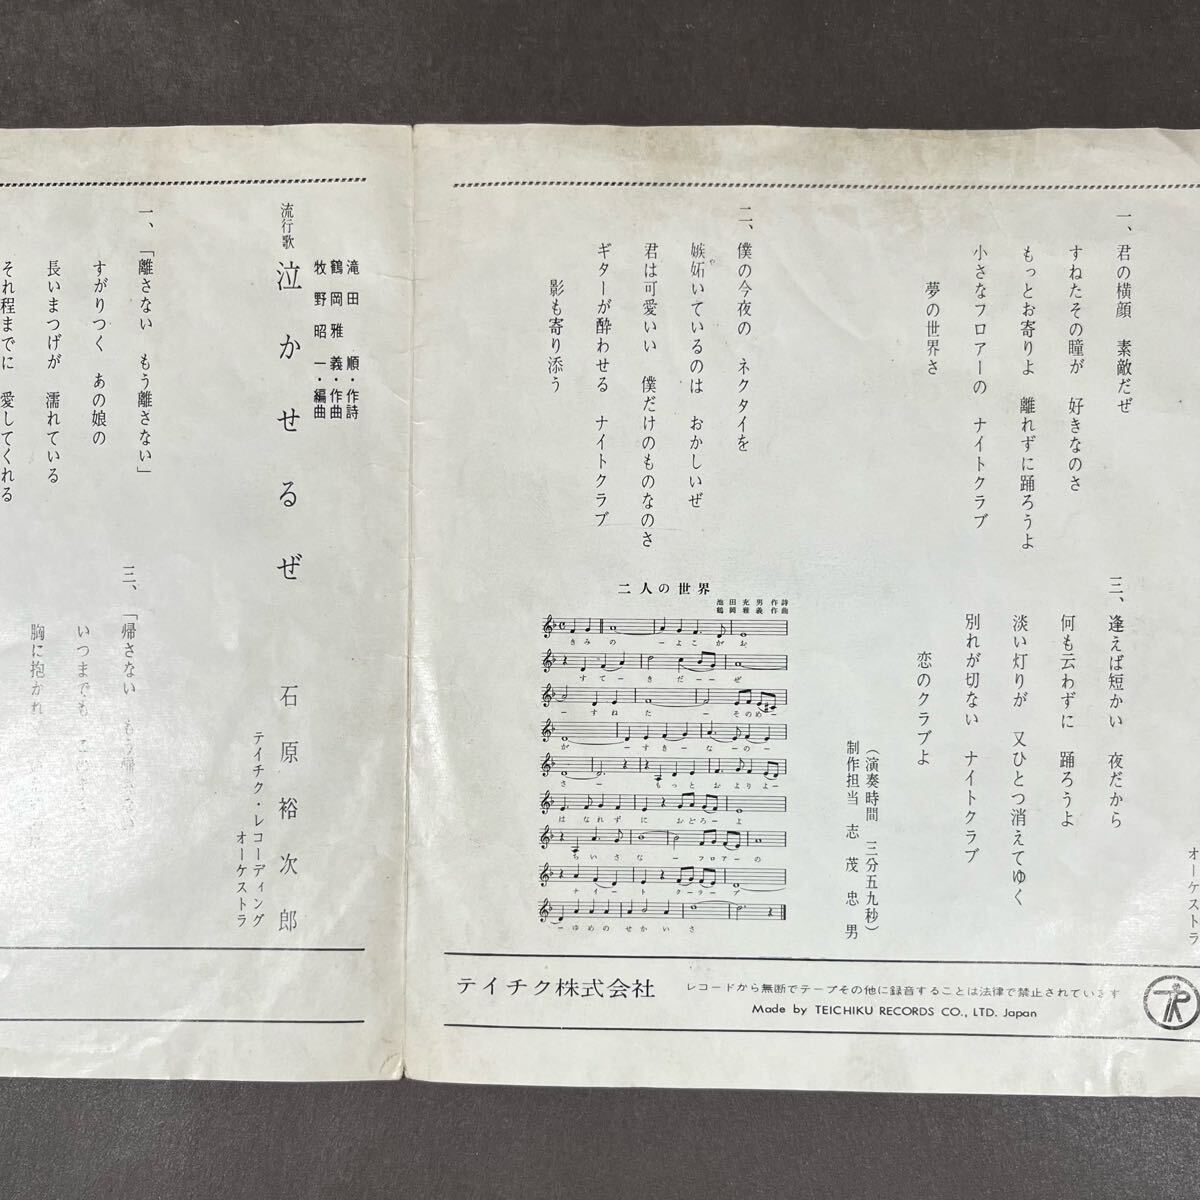 一、君の横顔 素敵だぜ
すねたその瞳が 好きなのさ
もっとお寄りよ 離れずに踊ろうよ
小さなフロアーの ナイトクラブ
夢の世界さ
二、僕の今夜の ネクタイを
嫉妬いているのは おかしいぜ
君は可愛いい 僕だけのものなのさ
ギターが酔わせる ナイトクラブ
影も寄り添う
三、逢えば短かい 夜だから
何も云わずに 踊ろうよ
淡い灯りが 又ひとつ消えてゆく
別れが切ない ナイトクラブ
恋のクラブよ
オーケストラ
(演奏時間 三分五九秒)
制作担当 志茂忠男
二人の世界
池田充男作詩
鶴岡雅義作曲
きみの ーよこがお
すてーきだーーぜ
ーすねたー そのめー
がー ーすきーなーのー
さー もっとおよりよー
はなれずに おどろーよ
ちいさなーフロアーの
ナイートクーラーブ
ーゆめのせかいさ
テイチク株式会社
レコードから無断でテープその他に録音することは法律で禁止されています
Made by TEICHIKU RECORDS CO., LTD. Japan
滝田 順・作詩
鶴岡雅義・作曲
牧野昭一・編曲
流行歌 泣かせるぜ 石原裕次郎
テイチク・レコーディング
オーケストラ
一、「離さない もう離さない」
すがりつく あの娘の
長いまつげが 濡れている
それ程までに 愛してくれる
三、「帰さない
いつまでも
胸に抱かれ